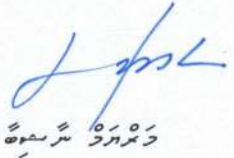 މަރްޔަމް ނާޝިބާ